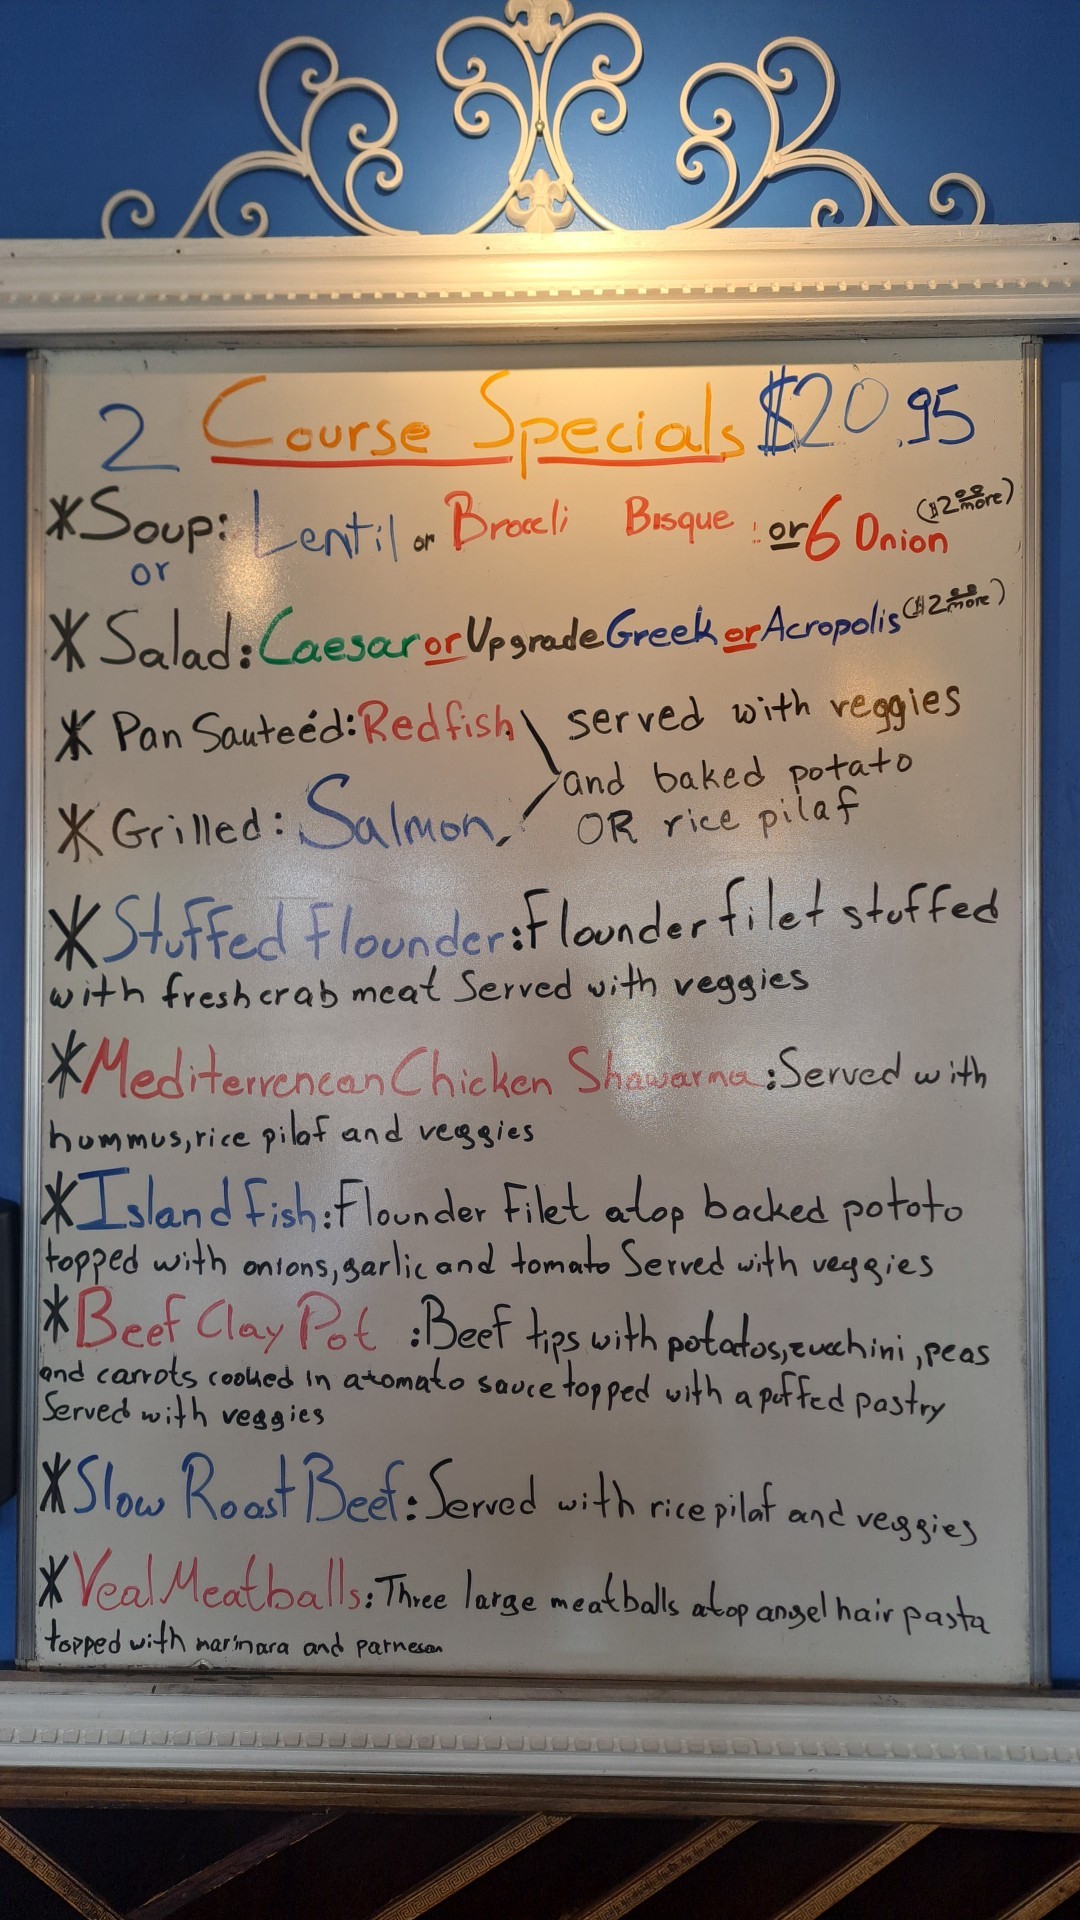 2 Course Specials $20.95
*Soup: Lentil or Brocceli Bisque or 6 Onion ($2.00 more)
or
* Salad: Caesar or Upgrade Greek or Acropolis ($2.00 more)
* Pan Sauteéd: Redfish \ served with veggies
and baked potato
* Grilled: Salmon / OR rice pilaf
* Stuffed Flounder: Flounder filet stuffed
with fresh crab meat Served with veggies
*Mediterrenean Chicken Shawarma: Served with
hummus, rice pilaf and veggies
*Island Fish: Flounder Filet atop backed pototo
topped with onions, garlic and tomato Served with veggies
*Beef Clay Pot: Beef tips with potatos, zucchini, peas
and carrots cooked in a tomato sauce topped with a puffed pastry
Served with veggies
*Slow Roast Beef: Served with rice pilaf and veggies
*Veal Meatballs: Three large meatballs atop angel hair pasta
topped with marinara and parmesan